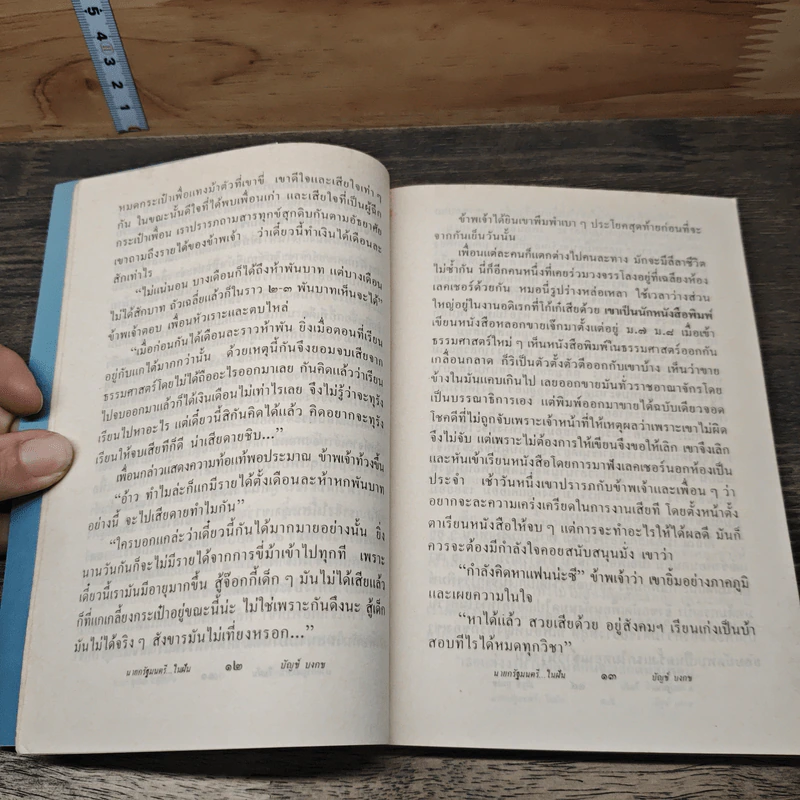 5
4
3
2
1
หมดกระเป๋าเพื่อแทงม้าตัวที่เขาขี่ เขาดีใจและเสียใจเท่า ๆ
กัน ในขณะนั้นดีใจที่ได้พบเพื่อนเก่า และเสียใจที่เป็นผู้ฉีก
กระเป๋าเพื่อน เราปรารภถามสารทุกข์สุกดิบกันตามอัธยาศัย
เขาถามถึงรายได้ของข้าพเจ้า ว่าเดี๋ยวนี้ทำเงินได้เดือนละ
สักเท่าไร
“ไม่แน่นอน บางเดือนก็ได้ถึงห้าพันบาท แต่บางเดือน
ไม่ได้สักบาท ถัวเฉลี่ยแล้วก็ในราว ๒-๓ พันบาทเห็นจะได้”
ข้าพเจ้าตอบ เพื่อนหัวเราะและตบไหล่
“เมื่อก่อนกันได้เดือนละราวห้าพัน ยิ่งเมื่อตอนที่เรียน
อยู่กับแกได้มากกว่านั้น ด้วยเหตุนี้กันจึงยอมจบเสียจาก
ธรรมศาสตร์โดยไม่ได้ถืออะไรออกมาเลย กันคิดแล้วว่าเรียน
ไปจบออกมาแล้วก็ได้เงินเดือนไม่เท่าไรเลย จึงไม่รู้ว่าจะทุรัง
เรียนไปหาอะไร แต่เดี๋ยวนี้สิกันคิดได้แล้ว คิดอยากจะทุรัง
เรียนให้จบเสียทีก็ดี น่าเสียดายชิบ...”
เพื่อนกล่าวแสดงความท้อแท้พอประมาณ ข้าพเจ้าท้วงขึ้น
“อ้าว ทำไมล่ะก็แกมีรายได้ตั้งเดือนละห้าหกพันบาท
อย่างนี้ จะไปเสียดายทำไมกัน”
“ใครบอกแกล่ะว่าเดี๋ยวนี้กันได้มากมายอย่างนั้น ยิ่ง
นานวันกันก็จะไม่มีรายได้จากการขี่ม้าเข้าไปทุกที เพราะ
เดี๋ยวนี้เรามันมีอายุมากขึ้น สู้จ๊อกกี้เด็ก ๆ มันไม่ได้เสียแล้ว
ก็ที่แกเกลี้ยงกระเป๋าอยู่ขณะนี้น่ะ ไม่ใช่เพราะกันดึงนะ สู้เด็ก
มันไม่ได้จริง ๆ สังขารมันไม่เที่ยงหรอก...”
นายกรัฐมนตรี...ในฝัน ๑๒ บัญช์ บงกช
ข้าพเจ้าได้ยินเขาพึมพำเบา ๆ ประโยคสุดท้ายก่อนที่จะ
จากกันเย็นวันนั้น
เพื่อนแต่ละคนก็แตกต่างไปคนละทาง มักจะมีลีลาชีวิต
ไม่ซ้ำกัน นี่ก็อีกคนหนึ่งที่เคยร่วมวงจรรโลงอยู่ที่เฉลียงห้อง
เลคเชอร์ด้วยกัน หมอนี่รูปร่างหล่อเหลา ใช้เวลาว่างส่วน
ใหญ่อยู่ในงานอดิเรกที่โก้เก๋เสียด้วย เขาเป็นนักหนังสือพิมพ์
เขียนหนังสือหลอกขายเจ๊กมาตั้งแต่อยู่ ม.๗ ม.๘ เมื่อเข้า
ธรรมศาสตร์ใหม่ ๆ เห็นหนังสือพิมพ์ในธรรมศาสตร์ออกกัน
เกลื่อนกลาด ก็ริเป็นตัวตั้งตัวตีออกกับเขาบ้าง เห็นว่าขาย
ข้างในมันแคบเกินไป เลยออกขายมันทั่วราชอาณาจักรโดย
เป็นบรรณาธิการเอง แต่พิมพ์ออกมาขายได้ฉบับเดียวจอด
โชคดีที่ไม่ถูกจับเพราะเจ้าหน้าที่ให้เหตุผลว่าเพราะเขาไม่ผิด
จึงไม่จับ แต่เพราะไม่ต้องการให้เขียนจึงขอให้เลิก เขาจึงเลิก
และหันเข้าเรียนหนังสือโดยการมาฟังเลคเชอร์นอกห้องเป็น
ประจำ เช้าวันหนึ่งเขาปรารภกับข้าพเจ้าและเพื่อน ๆ ว่า
อยากจะละความเคร่งเครียดในการงานเสียที โดยตั้งหน้าตั้ง
ตาเรียนหนังสือให้จบ ๆ แต่การจะทำอะไรให้ได้ผลดี มันก็
ควรจะต้องมีกำลังใจคอยสนับสนุนมั่ง เขาว่า
“กำลังคิดหาแฟนน่ะซี” ข้าพเจ้าว่า เขายิ้มอย่างภาคภูมิ
และเผยความในใจ
“หาได้แล้ว สวยเสียด้วย อยู่สังคมฯ เรียนเก่งเป็นบ้า
สอบทีไรได้หมดทุกวิชา”
นายกรัฐมนตรี...ในฝัน ๑๓ บัญช์ บงกช